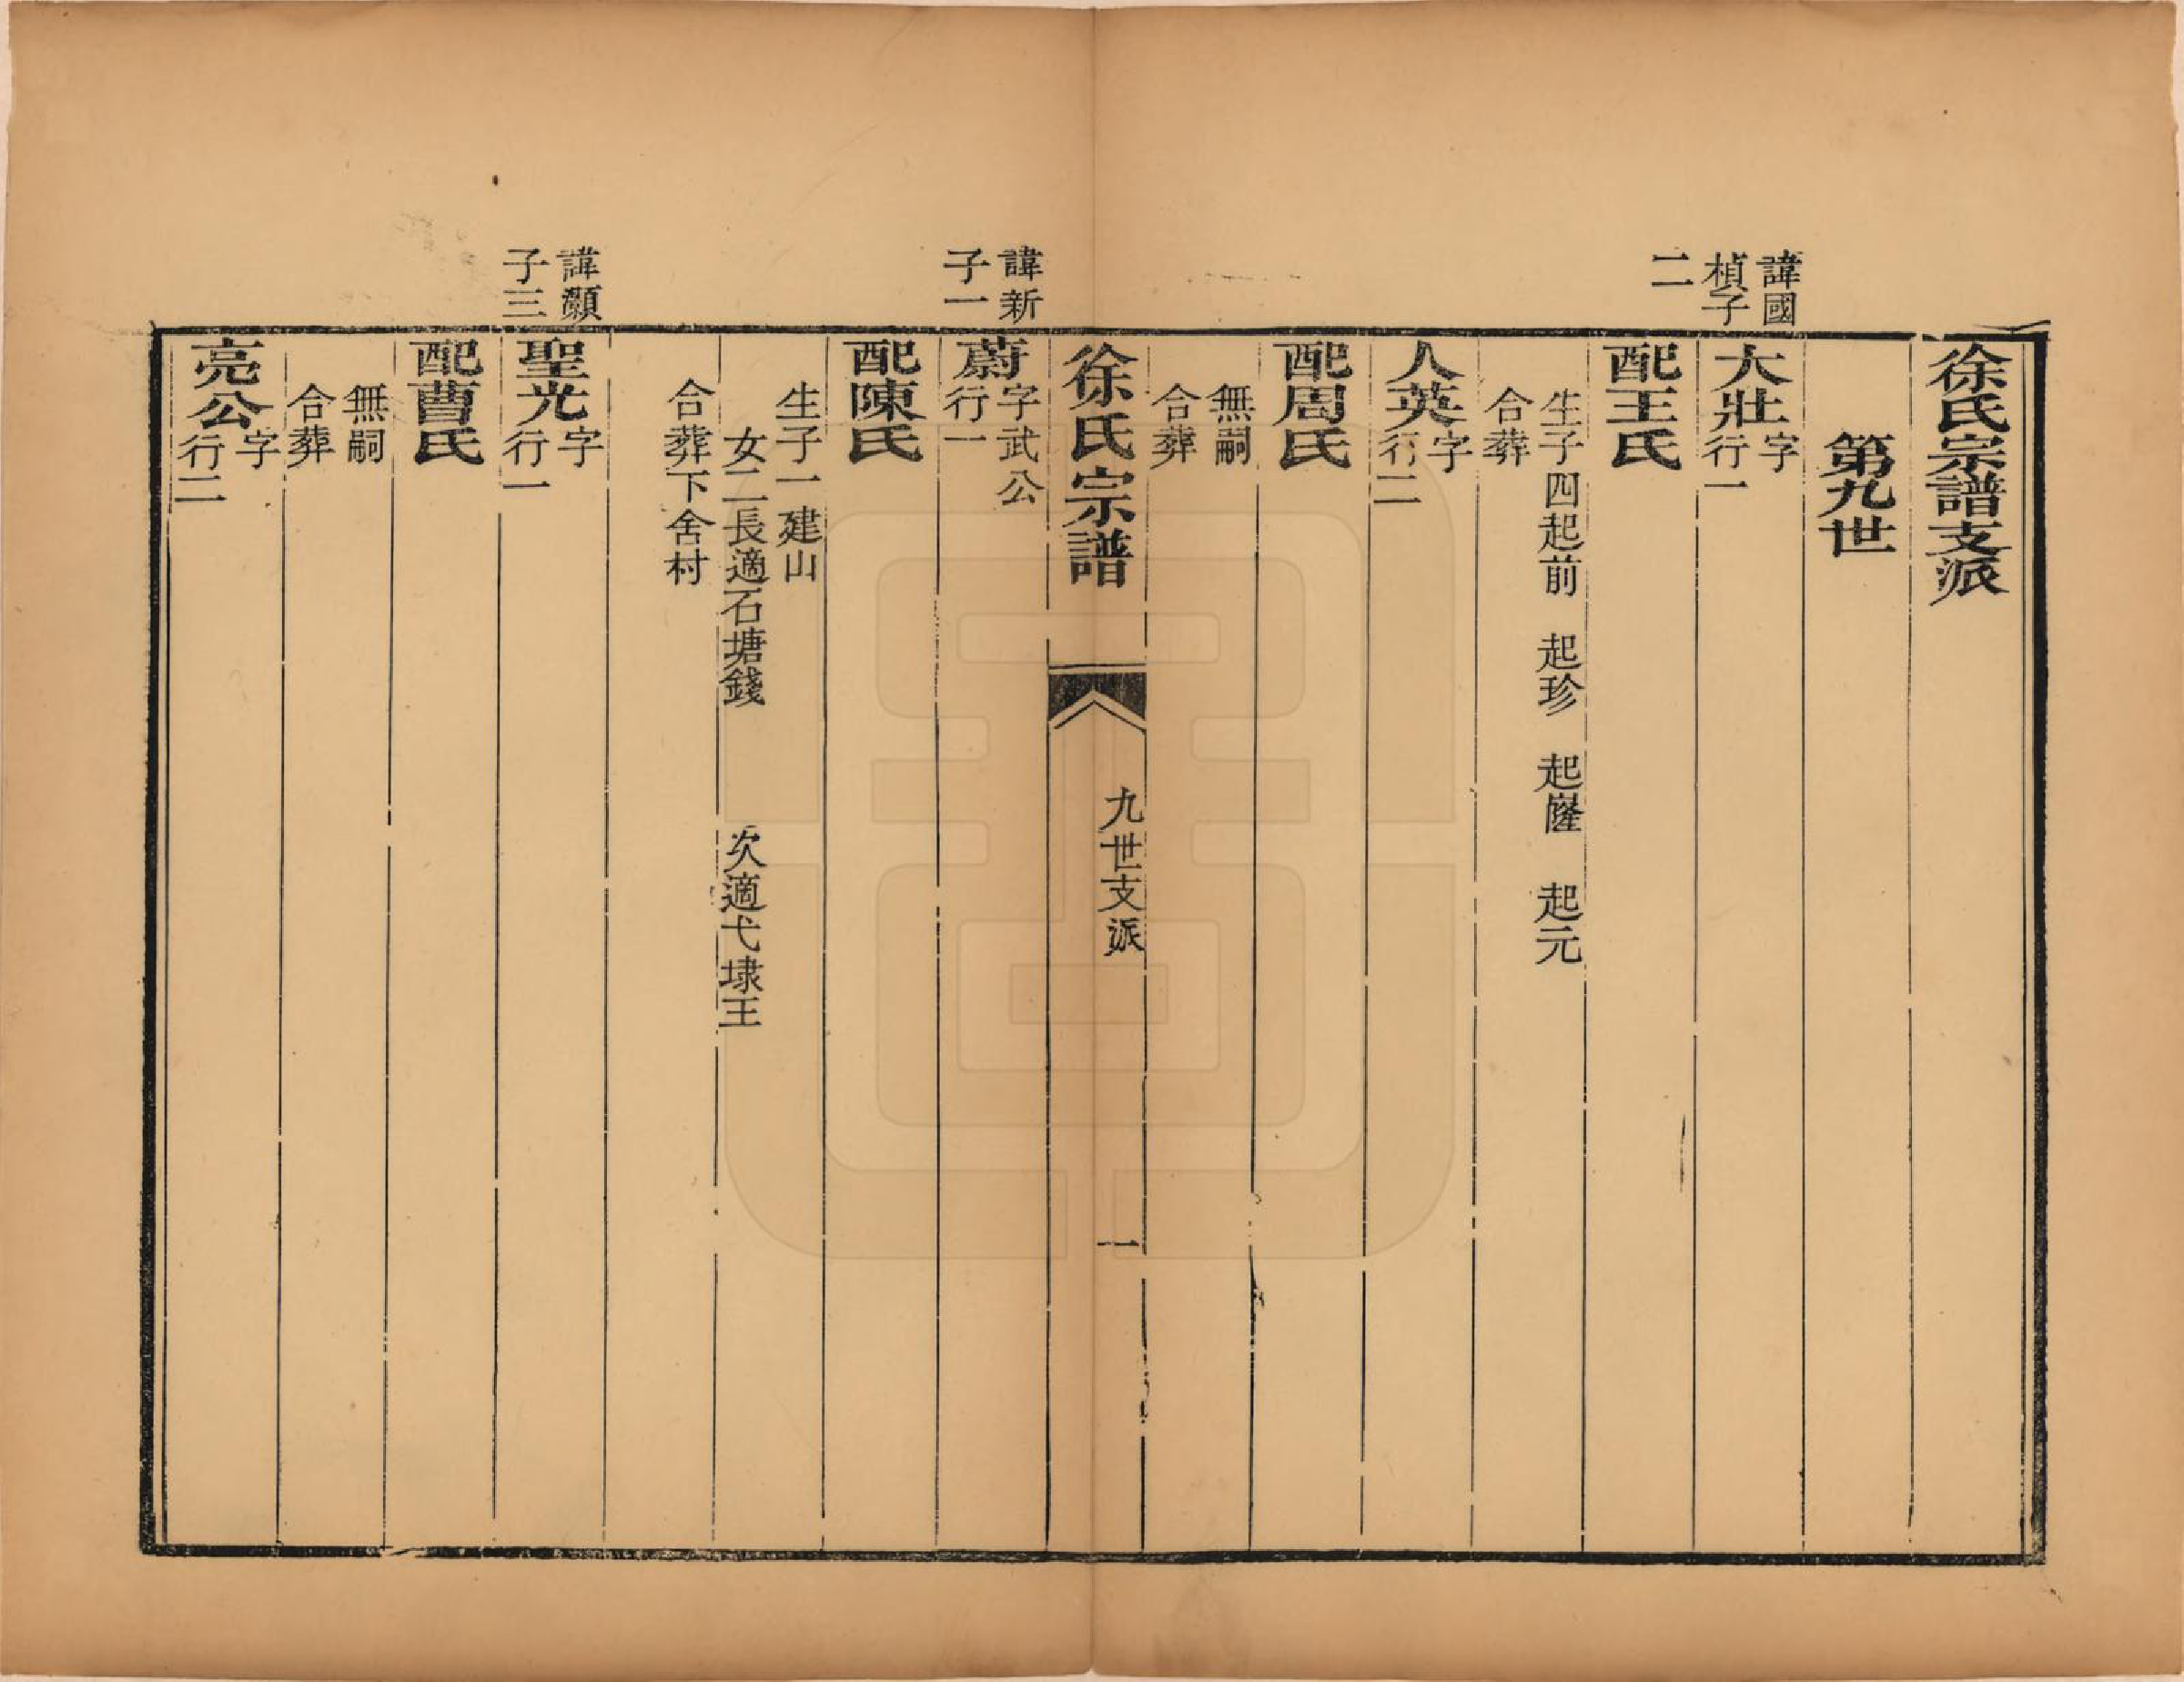 徐氏宗譜支派
第九世
諱國
楨子
二
大壯字
行一
配王氏
生子四起前　起珍　起嶐　起元
合葬
人英字
行二
配周氏
無嗣
合葬
徐氏宗譜
九世支派
一
諱新
子一
蔚字武公
行一
配陳氏
生子一建山
女二長適石塘錢　次適弋埭王
合葬下舍村
諱灝
子三
聖光字
行一
配曹氏
無嗣
合葬
亮公字
行二